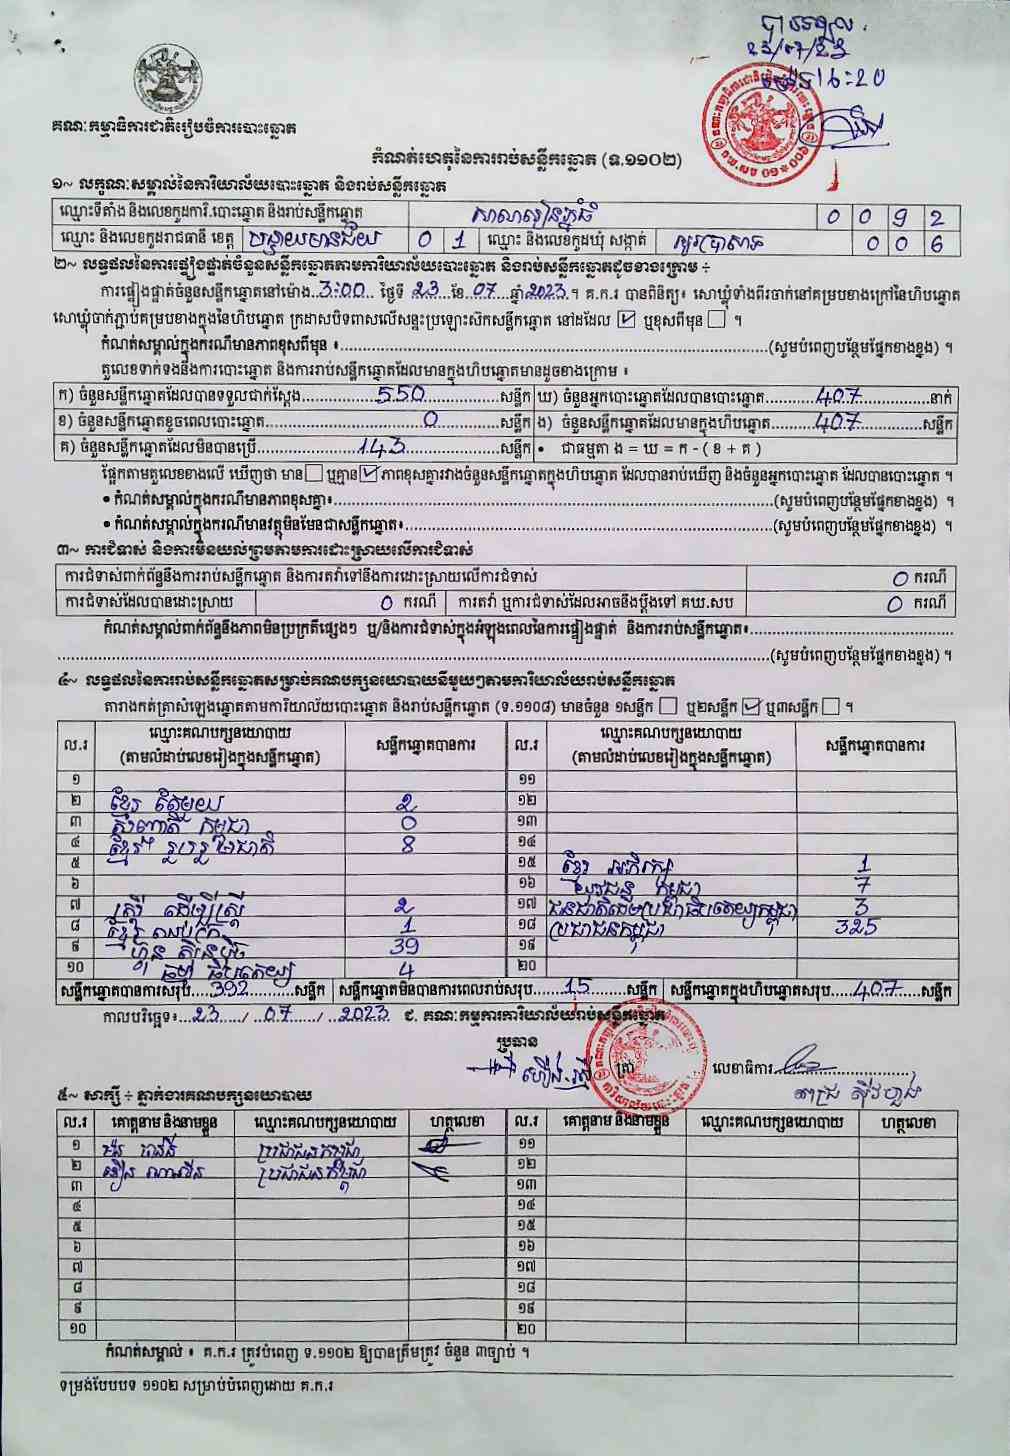 23/07/23
16:20
គណៈកម្មាធិការជាតិរៀបចំការបោះឆ្នោត
កំណត់ហេតុនៃការរាប់សន្លឹកឆ្នោត (ទ.១១០២)
១~ លក្ខណៈសម្គាល់នៃការិយាល័យបោះឆ្នោត និងរាប់សន្លឹកឆ្នោត
ឈ្មោះទីតាំង និងលេខកូដការិ.បោះឆ្នោត និងរាប់សន្លឹកឆ្នោត 0 0 9 2
ឈ្មោះ និងលេខកូដរាជធានី ខេត្ត បន្ទាយមានជ័យ 0 1 ឈ្មោះ និងលេខកូដឃុំ សង្កាត់ អូរប្រាសាទ 0 0 6
២~ លទ្ធផលនៃការផ្ទៀងផ្ទាត់ចំនួនសន្លឹកឆ្នោតតាមការិយាល័យបោះឆ្នោត និងរាប់សន្លឹកឆ្នោតដូចខាងក្រោម ÷
ការផ្ទៀងផ្ទាត់ចំនួនសន្លឹកឆ្នោតនៅម៉ោង 3:00 ថ្ងៃទី 23 ខែ 07 ឆ្នាំ 2023 ។ គ.ក.រ បានពិនិត្យ៖ សោឃ្លុំទាំងពីរចាក់នៅគម្របខាងក្រៅនៃហិបឆ្នោត
សោឃ្លុំចាក់ភ្ជាប់គម្របខាងក្នុងនៃហិបឆ្នោត ក្រដាសបិទពាសលើសន្ទះប្រឡោះសិកសន្លឹកឆ្នោត នៅដដែល ☑ ឬខុសពីមុន ☐ ។
កំណត់សម្គាល់ក្នុងករណីមានភាពខុសពីមុន ៖ (សូមបំពេញបន្ថែមផ្នែកខាងខ្នង) ។
តួលេខទាក់ទងនឹងការបោះឆ្នោត និងការរាប់សន្លឹកឆ្នោតដែលមានក្នុងហិបឆ្នោតមានដូចខាងក្រោម ៖
ក) ចំនួនសន្លឹកឆ្នោតដែលបានទទួលជាក់ស្តែង 550 សន្លឹក ឃ) ចំនួនអ្នកបោះឆ្នោតដែលបានបោះឆ្នោត 407 នាក់
ខ) ចំនួនសន្លឹកឆ្នោតខូចពេលបោះឆ្នោត 0 សន្លឹក ង) ចំនួនសន្លឹកឆ្នោតដែលមានក្នុងហិបឆ្នោត 407 សន្លឹក
គ) ចំនួនសន្លឹកឆ្នោតដែលមិនបានប្រើ 143 សន្លឹក • ជាធម្មតា ង = ឃ = ក - ( ខ + គ )
ផ្អែកតាមតួលេខខាងលើ ឃើញថា មាន ☐ ឬគ្មាន ☑ ភាពខុសគ្នារវាងចំនួនសន្លឹកឆ្នោតក្នុងហិបឆ្នោត ដែលបានរាប់ឃើញ និងចំនួនអ្នកបោះឆ្នោត ដែលបានបោះឆ្នោត ។
• កំណត់សម្គាល់ក្នុងករណីមានភាពខុសគ្នា៖ (សូមបំពេញបន្ថែមផ្នែកខាងខ្នង) ។
• កំណត់សម្គាល់ក្នុងករណីមានវត្ថុមិនមែនជាសន្លឹកឆ្នោត៖ (សូមបំពេញបន្ថែមផ្នែកខាងខ្នង) ។
៣~ ការជំទាស់ និងការមិនយល់ព្រមតាមការដោះស្រាយលើការជំទាស់
ការជំទាស់ពាក់ព័ន្ធនឹងការរាប់សន្លឹកឆ្នោត និងការតវ៉ាទៅនឹងការដោះស្រាយលើការជំទាស់ 0 ករណី
ការជំទាស់ដែលបានដោះស្រាយ 0 ករណី ការតវ៉ា ឬការជំទាស់ដែលអាចនឹងប្តឹងទៅ គឃ.សប 0 ករណី
កំណត់សម្គាល់ពាក់ព័ន្ធនឹងភាពមិនប្រក្រតីផ្សេងៗ ឬ/និងការជំទាស់ក្នុងអំឡុងពេលនៃការផ្ទៀងផ្ទាត់ និងការរាប់សន្លឹកឆ្នោត៖
(សូមបំពេញបន្ថែមផ្នែកខាងខ្នង) ។
៤~ លទ្ធផលនៃការរាប់សន្លឹកឆ្នោតសម្រាប់គណបក្សនយោបាយនីមួយៗតាមការិយាល័យរាប់សន្លឹកឆ្នោត
តារាងកត់ត្រាសំឡេងឆ្នោតតាមការិយាល័យបោះឆ្នោត និងរាប់សន្លឹកឆ្នោត (ទ.១១០៨) មានចំនួន ១សន្លឹក ☐ ឬ២សន្លឹក ☑ ឬ៣សន្លឹក ☐ ។
ល.រ ឈ្មោះគណបក្សនយោបាយ (តាមលំដាប់លេខរៀងក្នុងសន្លឹកឆ្នោត) សន្លឹកឆ្នោតបានការ ល.រ ឈ្មោះគណបក្សនយោបាយ (តាមលំដាប់លេខរៀងក្នុងសន្លឹកឆ្នោត) សន្លឹកឆ្នោតបានការ
១ ១១
២ ខ្មែរ តែមួយ 2 ១២
៣ កម្ពុជា 0 ១៣
៤ ខ្មែរ រួបរួមជាតិ 8 ១៤
៥ ១៥ ខ្មែរ អភិរក្ស 1
៦ ១៦ យុវជន កម្ពុជា 7
៧ ស្ត្រី ដើម្បីស្ត្រី 2 ១៧ ជនជាតិដើមប្រជាធិបតេយ្យកម្ពុជា 3
៨ ខ្មែរ 1 ១៨ ប្រជាជនកម្ពុជា 325
៩ ហ៊្វុនស៊ិនប៉ិច 39 ១៩
១០ ធម្មាធិបតេយ្យ 4 ២០
សន្លឹកឆ្នោតបានការសរុប 392 សន្លឹក សន្លឹកឆ្នោតមិនបានការពេលរាប់សរុប 15 សន្លឹក សន្លឹកឆ្នោតក្នុងហិបឆ្នោតសរុប 407 សន្លឹក
កាលបរិច្ឆេទ៖ 23 / 07 / 2023 ជ. គណៈកម្មការការិយាល័យរាប់សន្លឹកឆ្នោត
ប្រធាន
លេខាធិការ
៥~ សាក្សី ÷ ភ្នាក់ងារគណបក្សនយោបាយ
ល.រ គោត្តនាម និងនាមខ្លួន ឈ្មោះគណបក្សនយោបាយ ហត្ថលេខា ល.រ គោត្តនាម និងនាមខ្លួន ឈ្មោះគណបក្សនយោបាយ ហត្ថលេខា
១ ប្រជាជនកម្ពុជា ១១
២ ប្រជាជនកម្ពុជា ១២
៣ ១៣
៤ ១៤
៥ ១៥
៦ ១៦
៧ ១៧
៨ ១៨
៩ ១៩
១០ ២០
កំណត់សម្គាល់ ៖ គ.ក.រ ត្រូវបំពេញ ទ.១១០២ ឱ្យបានត្រឹមត្រូវ ចំនួន ៣ច្បាប់ ។
ទម្រង់បែបបទ ១១០២ សម្រាប់បំពេញដោយ គ.ក.រ